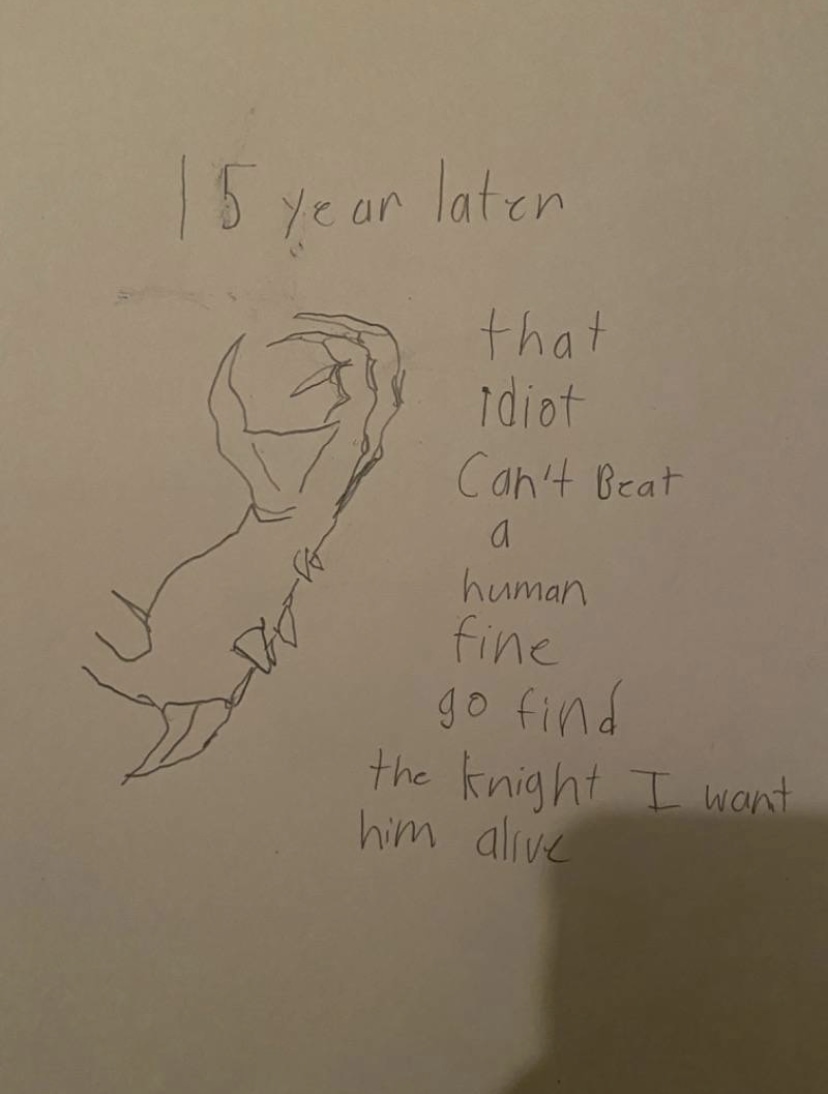 15 year later
that
idiot
Can't Beat
a
human
fine
go find
the knight I want
him alive